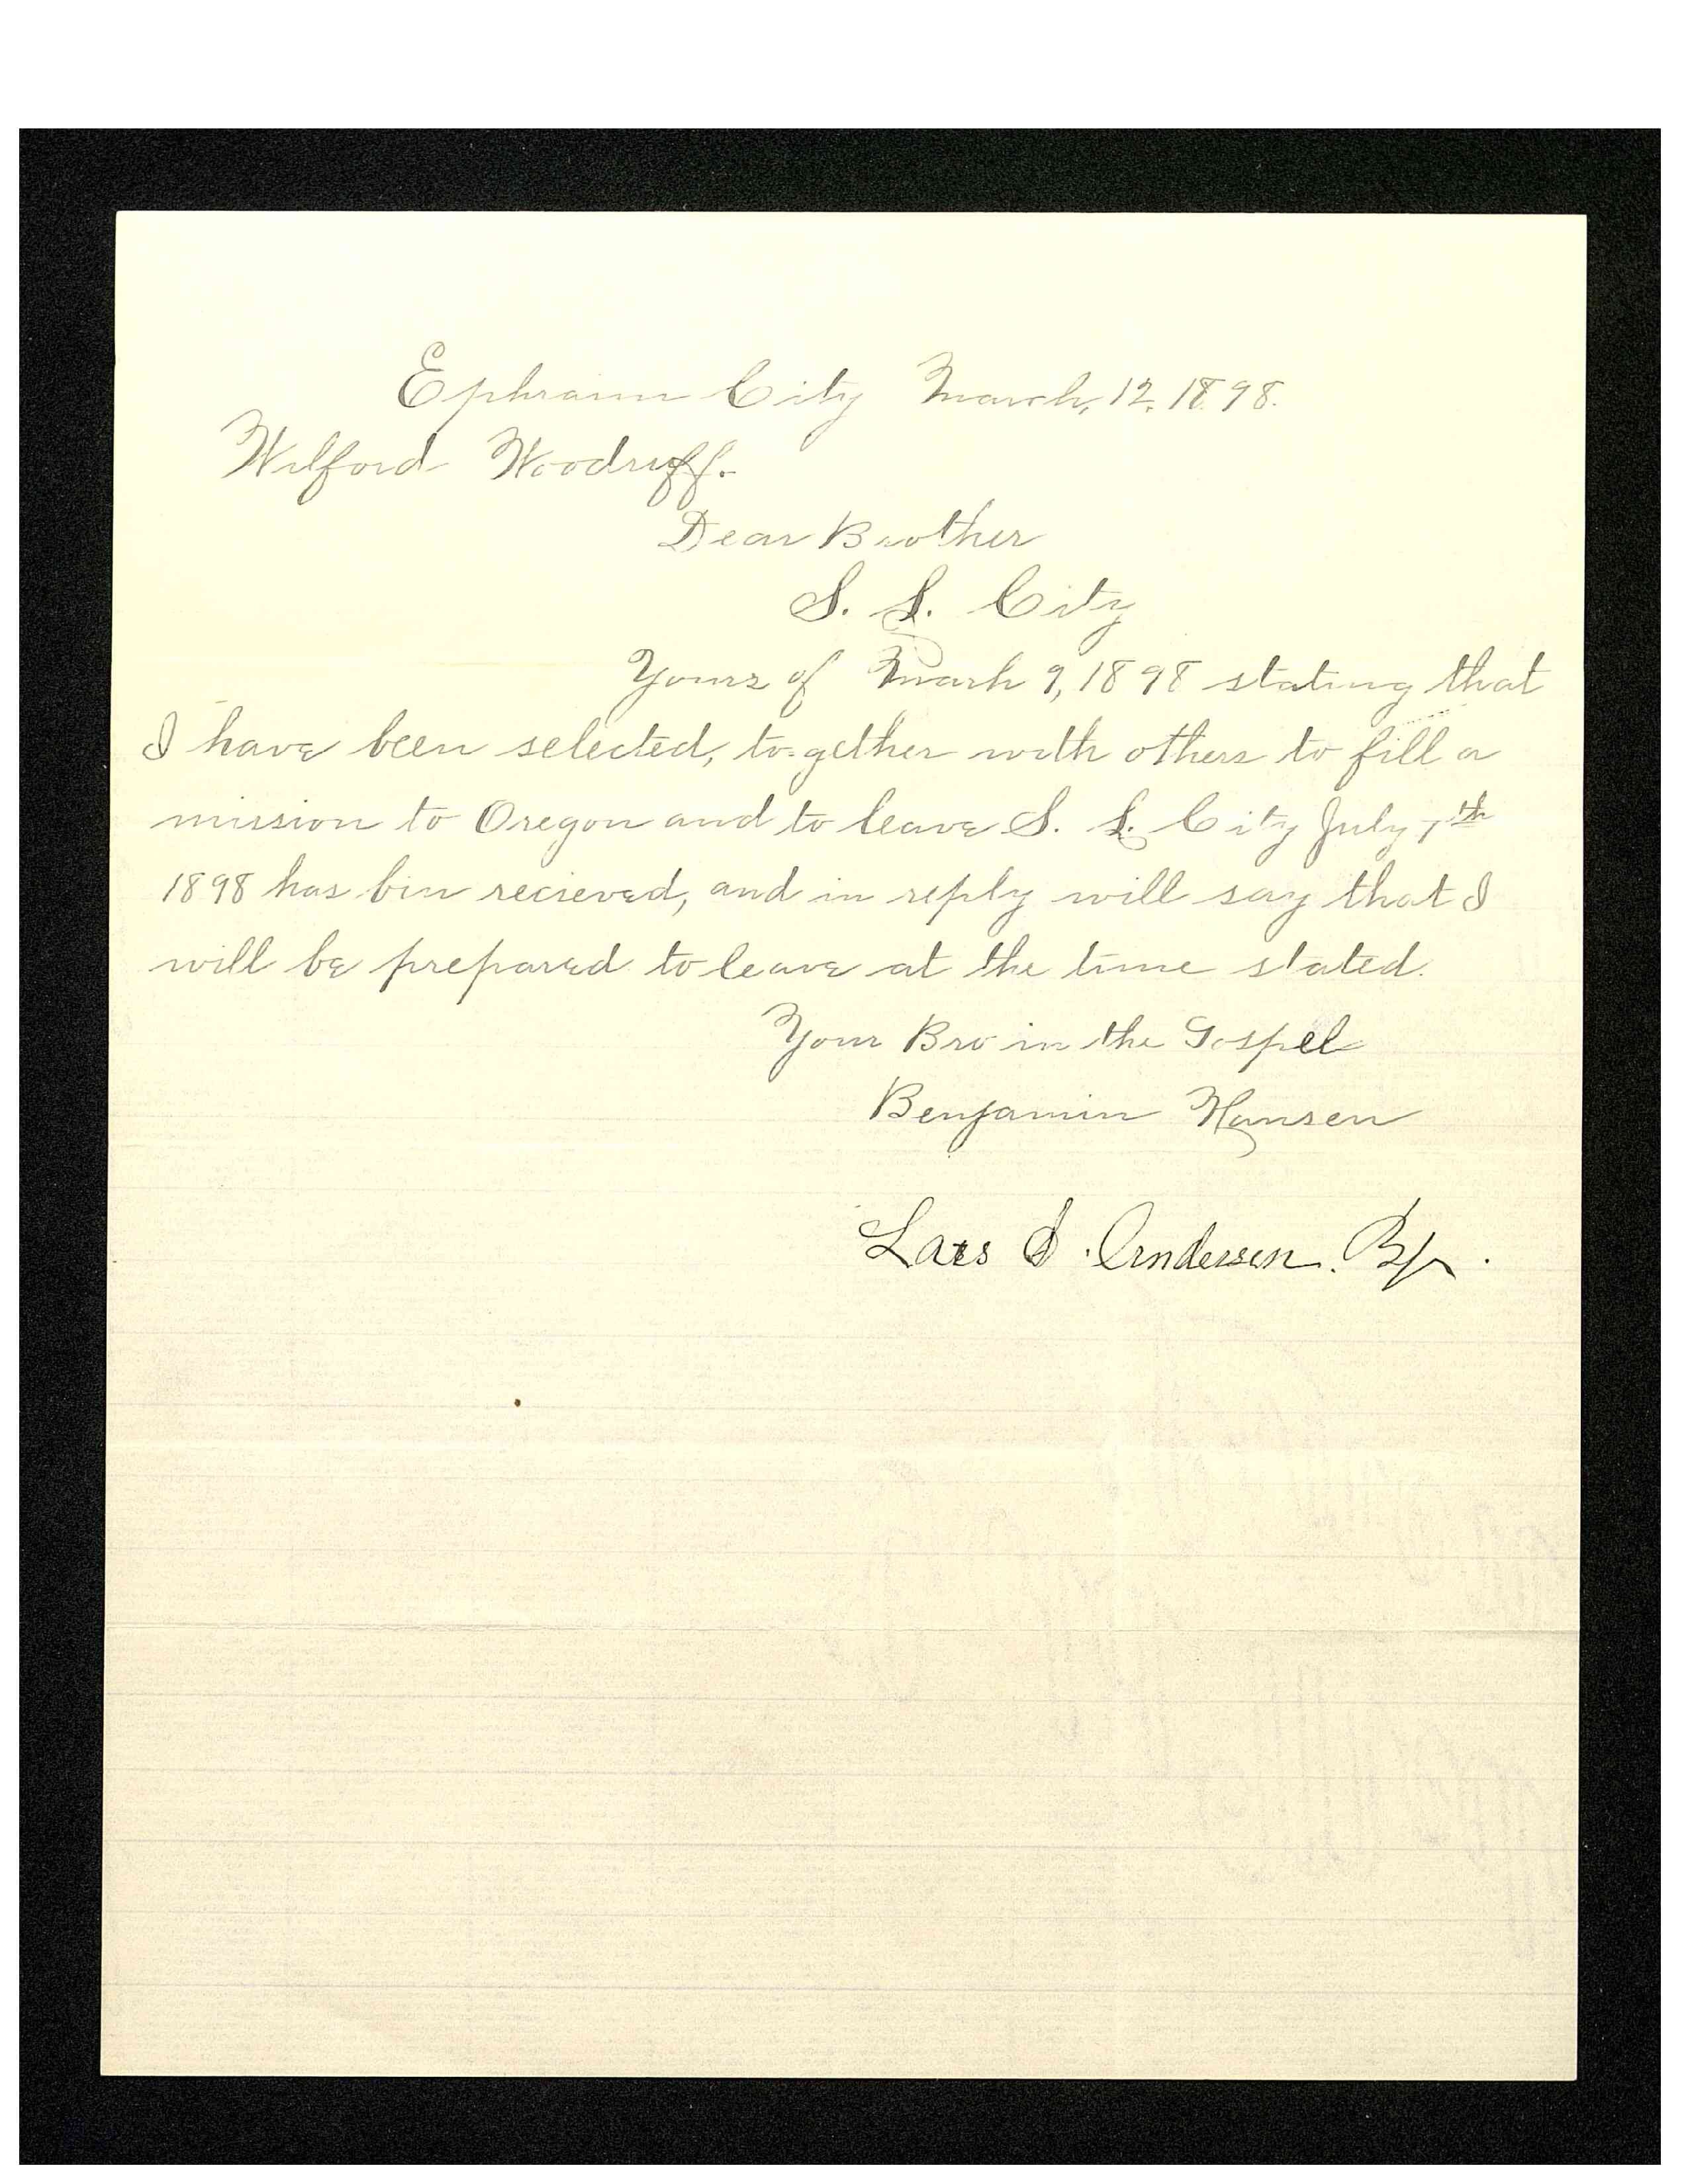 Ephraim City March, 12. 1898.
Wilford Woodruff.
Dear Brother
S. L. City
Yours of March 9, 1898 stating that
I have been selected, to-gether with others to fill a
mission to Oregon and to leave S. L. City July 7th
1898 has bin recieved, and in reply will say that I
will be prepared to leave at the time stated.
Your Bro in the Gospel
Benjamin Hansen
Lars S. Andersen. Bp.